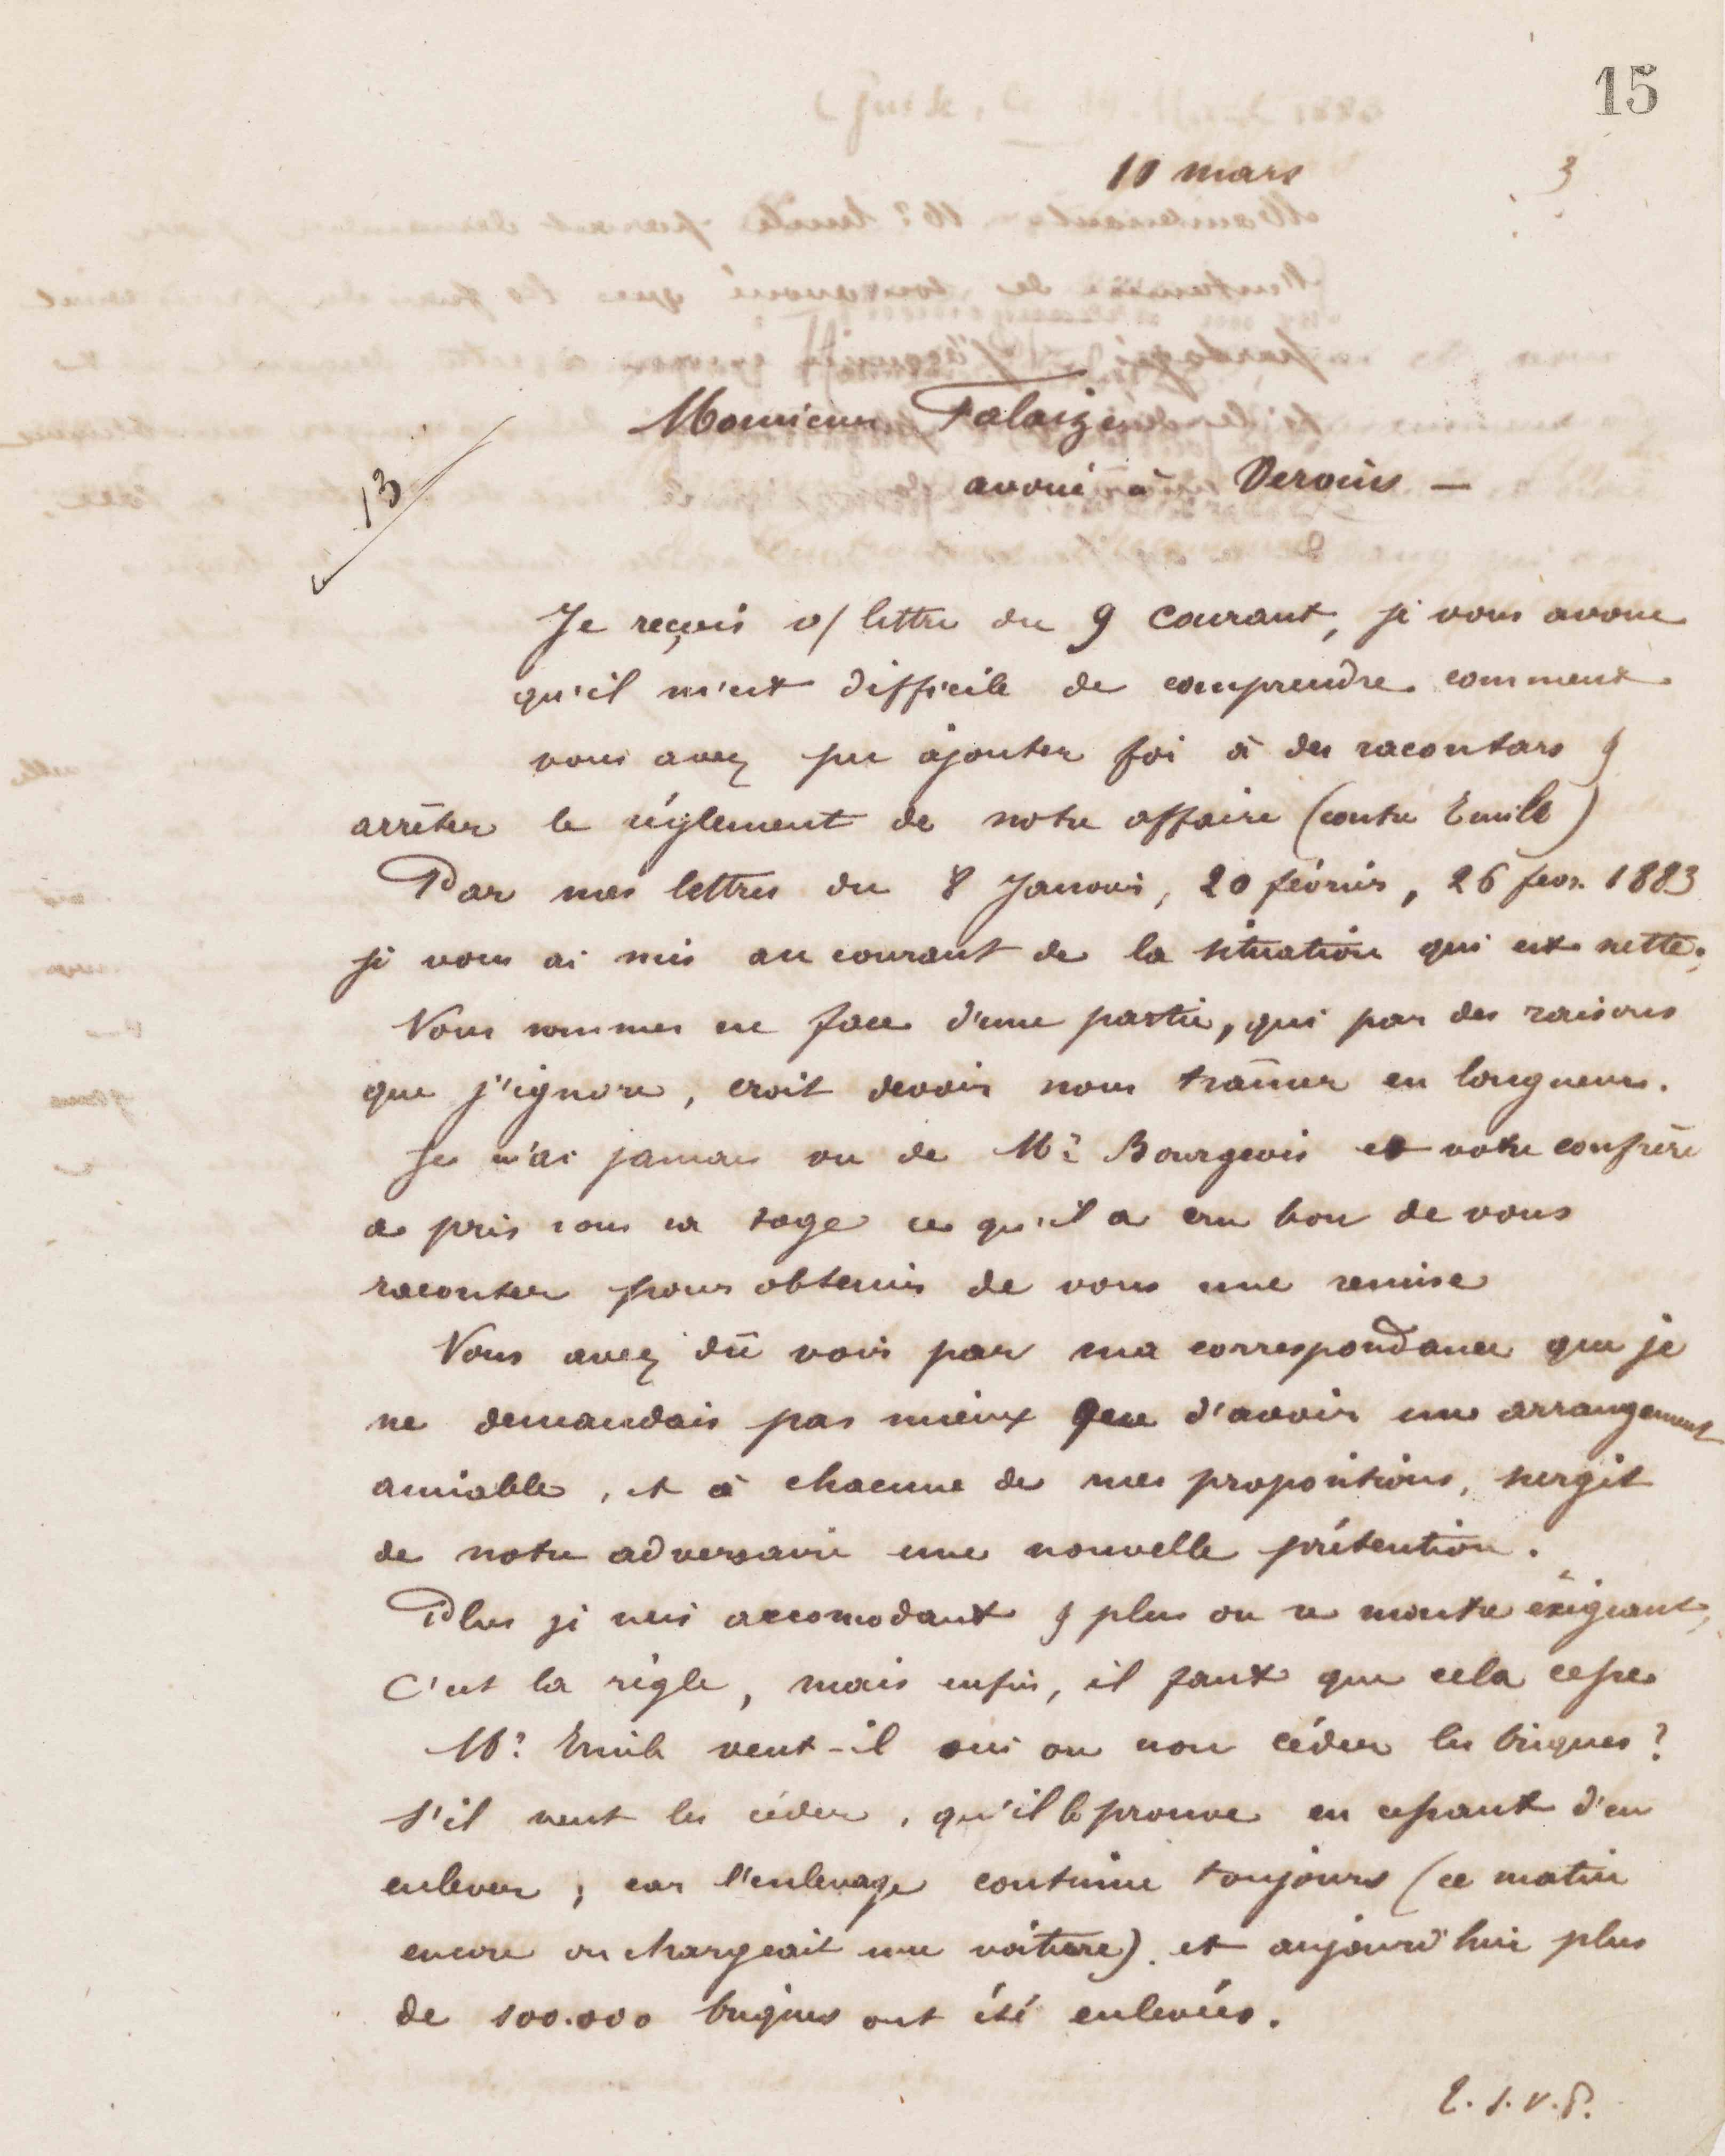 15
10 mars
3
Monsieur Falaize
avoué à Vervins —
13
Je reçois v/ lettre du 9 courant, je vous avoue
qu'il m'est difficile de comprendre comment
vous avez pu ajouter foi à des racontars &
arrêter le règlement de notre affaire (contre Emile)
Par mes lettres du 8 Janvier, 20 février, 26 fevr. 1883
je vous ai mis au courant de la situation qui est nette.
Nous sommes en face d'une partie, qui par des raisons
que j'ignore, croit devoir nous traîner en longueur.
Je n'ai jamais vu de Mr Bourgeois et votre confrère
a pris sous sa toge ce qu'il a cru bon de vous
raconter pour obtenir de vous une remise
Vous avez dû voir par ma correspondance que je
ne demandais pas mieux que d'avoir un arrangement
amiable, et à chacune de mes propositions, surgit
de notre adversaire une nouvelle prétention.
Plus je suis accomodant & plus on se montre éxigeant,
C'est la règle, mais enfin, il faut que cela cesse
Mr Emile veut-il oui ou non céder les briques?
S'il veut les céder, qu'il le prouve en cessant d'en
enlever; car l'enlevage continue toujours (ce matin
encore on chargeait une voiture). et aujourd'hui plus
de 100.000 briques ont été enlevées.
T. S. V. P.